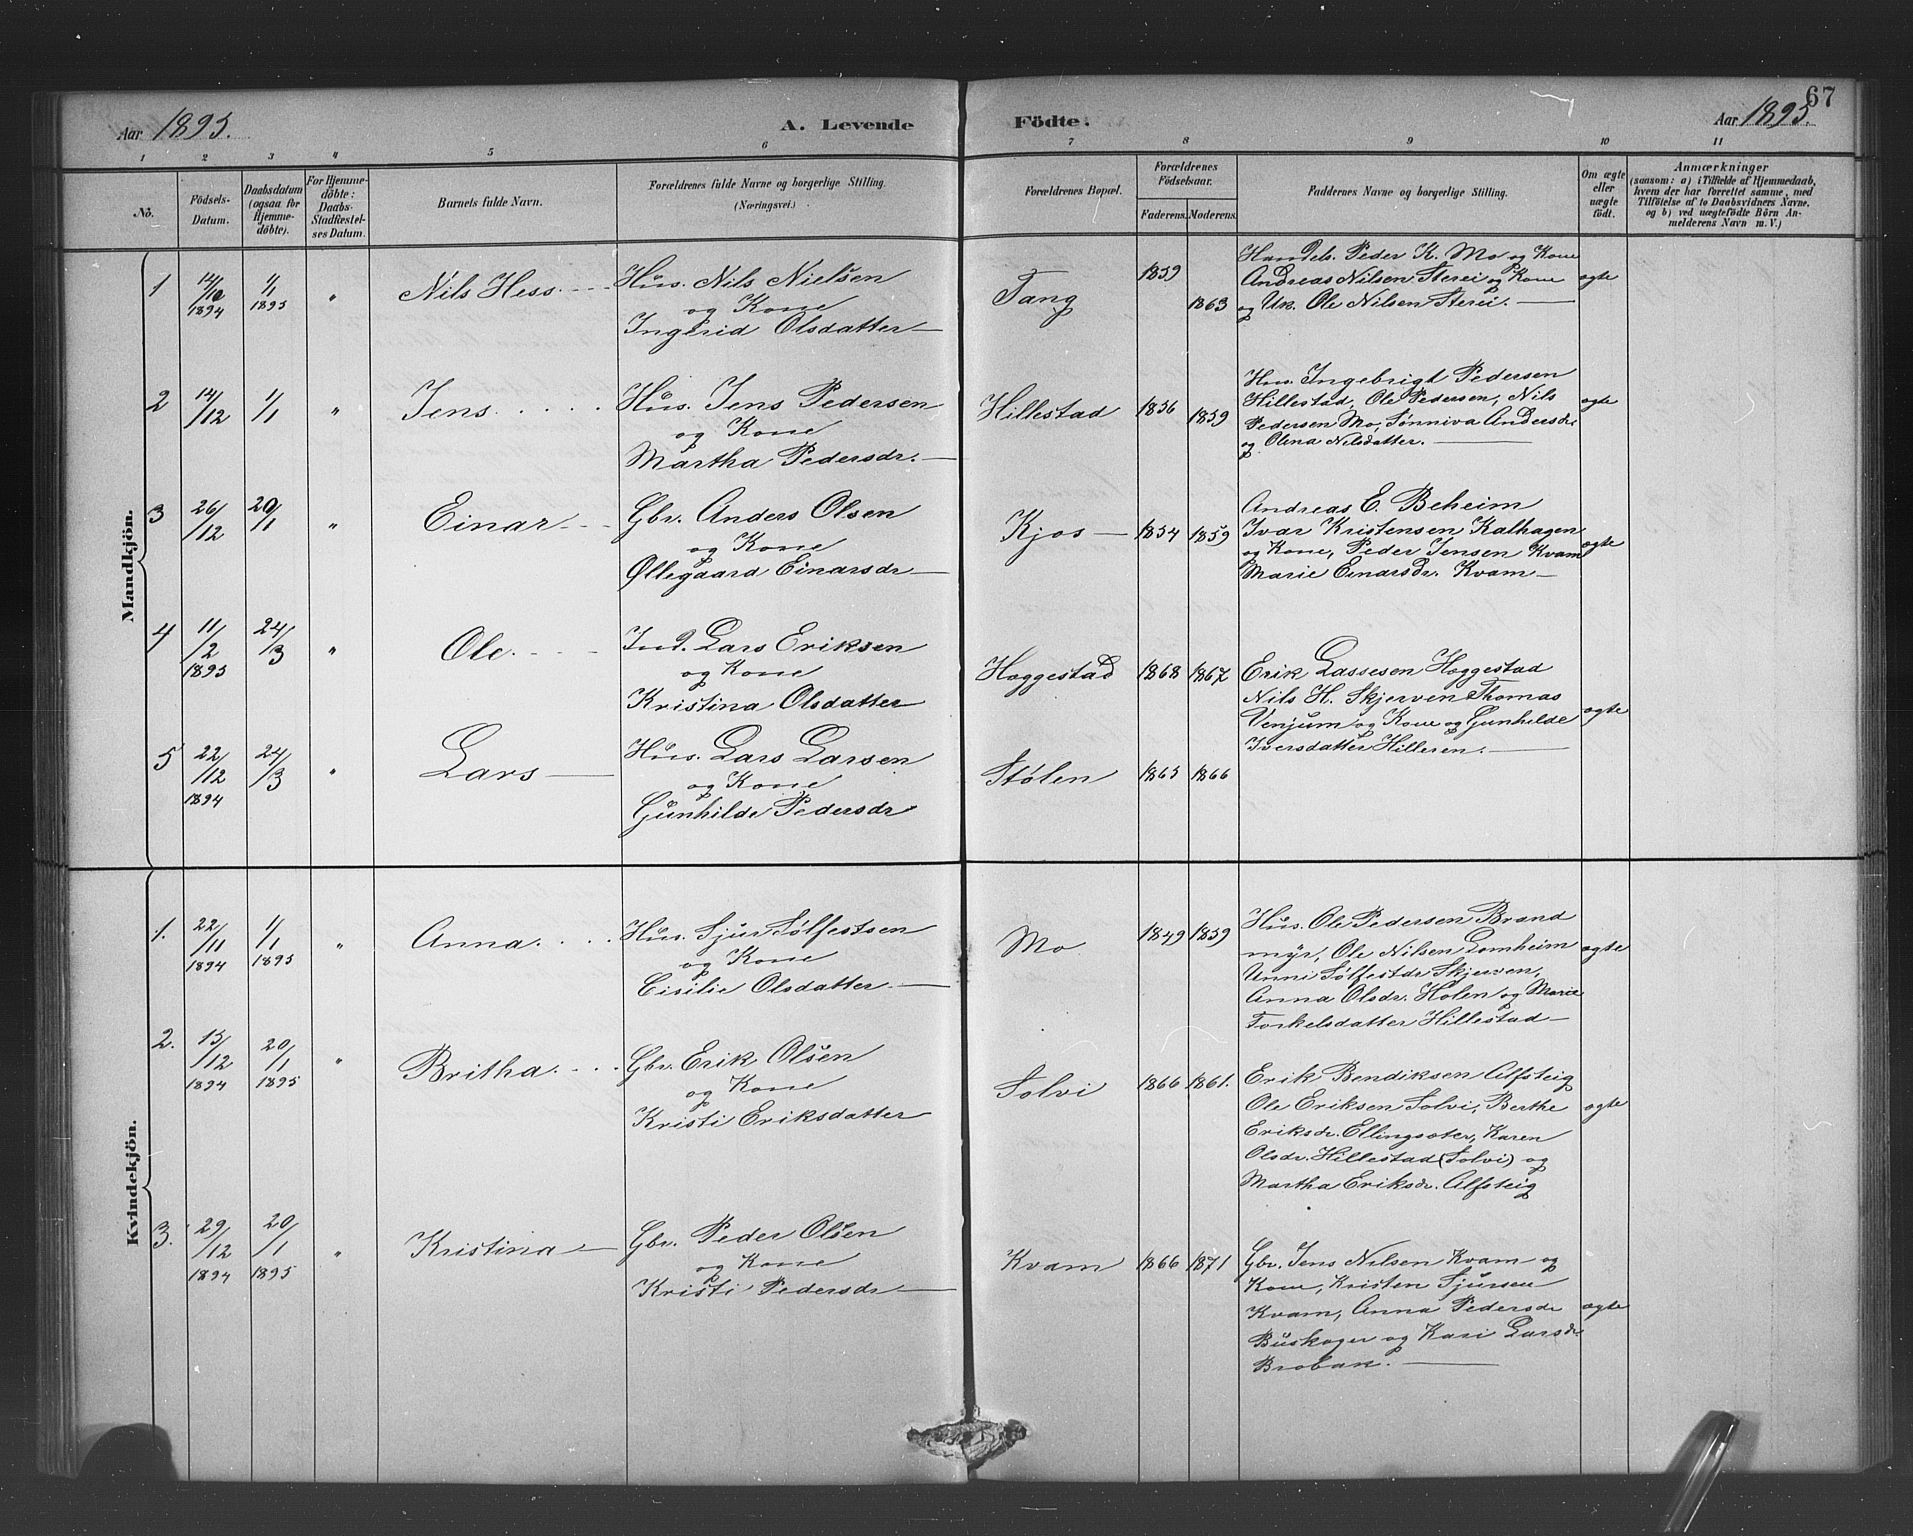 67
Aar 1895.
A. Levende Födte.
Aar 1895.
1 2 3 4 5 6 7 8 9 10 11
No.
Födsels-
Datum.
Daabsdatum
(ogsaa for
Hjemme-
döbte).
For Hjemme-
döbte:
Daabs-
Stadfæstel-
ses Datum.
Barnets fulde Navn.
Forældrenes fulde Navne og borgerlige Stilling.
(Næringsvei.)
Forældrenes Bopæl.
Forældrenes
Födselsaar.
Faderens. Moderens.
Faddernes Navne og borgerlige Stilling.
Om ægte
eller
uægte
födt.
Anmærkninger
(saasom: a) i Tilfælde af Hjemmedaab,
hvem der har forrettet samme, med
Tilföielse af to Daabsvidners Navne,
og b) ved uægtefödte Börn An-
melderens Navn m. V.)
Mandkjön.
1
14/10
1894
1/1
1895
"
Nils Hess
Hus. Nils Nielsen
og Kone
Ingerid Olsdatter
Tang
1859
1863
Handels. Peder K. Mo og Kone
Andreas Nilsen Sterei og Kone
og Uk. Ole Nilsen Sterei.
ægte
2
14/12
1/1
"
Jens
Hus. Jens Pedersen
og Kone
Martha Pedersdr.
Hillestad
1856
1859
Hus. Ingebrigt Pedersen
Hillestad, Ole Pedersen, Nils
Pedersen Mo, Sønniva Andersdr.
og Olina Nilsdatter.
ægte
3
26/12
20/1
"
Einar
Gbr. Anders Olsen
og Kone
Øllegaard Einarsdr
Kjos
1854
1859
Andreas E. Beheim
Ivar Kristensen Kalhagen
og Kone, Peder Jensen Kvam
Marie Einarsdr. Kvam
ægte
4
11/2
1895
24/3
"
Ole
Ind. Lars Eriksen
og Kone
Kristina Olsdatter
Hæggestad
1868
1867
Erik Lassesen Hæggestad
Nils H. Skjerven Thomas
Venjum og Kone og Gunhilde
Iversdatter Hilleren.
ægte
5
22/12
1894
24/3
"
Lars
Hus. Lars Larsen
og Kone
Gunhilde Pedersdr
Stølen
1865
1866
Kvindekjön.
1.
22/11
1894
1/1
1895
"
Anna
Hus. Sjur Sølfestsen
og Kone
Cisilie Olsdatter.
Mo
1849
1859
Hus. Ole Pedersen Brand
myr, Ole Nilsen Lomheim
Unni Sølfestdr Skjerven,
Anna Olsdr. Holen og Marie
Torkelsdatter Hillestad
ægte
2.
15/12
1894
20/1
1895
"
Britha
Gbr. Erik Olsen
og Kone
Kristi Eriksdatter
Solvi
1866
1861.
Erik Bendiksen Alfsteig
Ole Eriksen Solvi, Berthe
Eriksdr. Ellingsæter, Karen
Olsdr. Hillestad (Solvi) og
Martha Eriksdr. Alfsteig
ægte
3.
29/12
1894
20/1
1895
"
Kristina
Gbr. Peder Olsen
og Kone
Kristi Pedersdr
Kvam
1866
1871
Gbr. Jens Nilsen Kvam og
Kone, Kristen Sjursen
Kvam, Anna Pedersdr
Buskager og Kari Larsdr
Brobak.
ægte